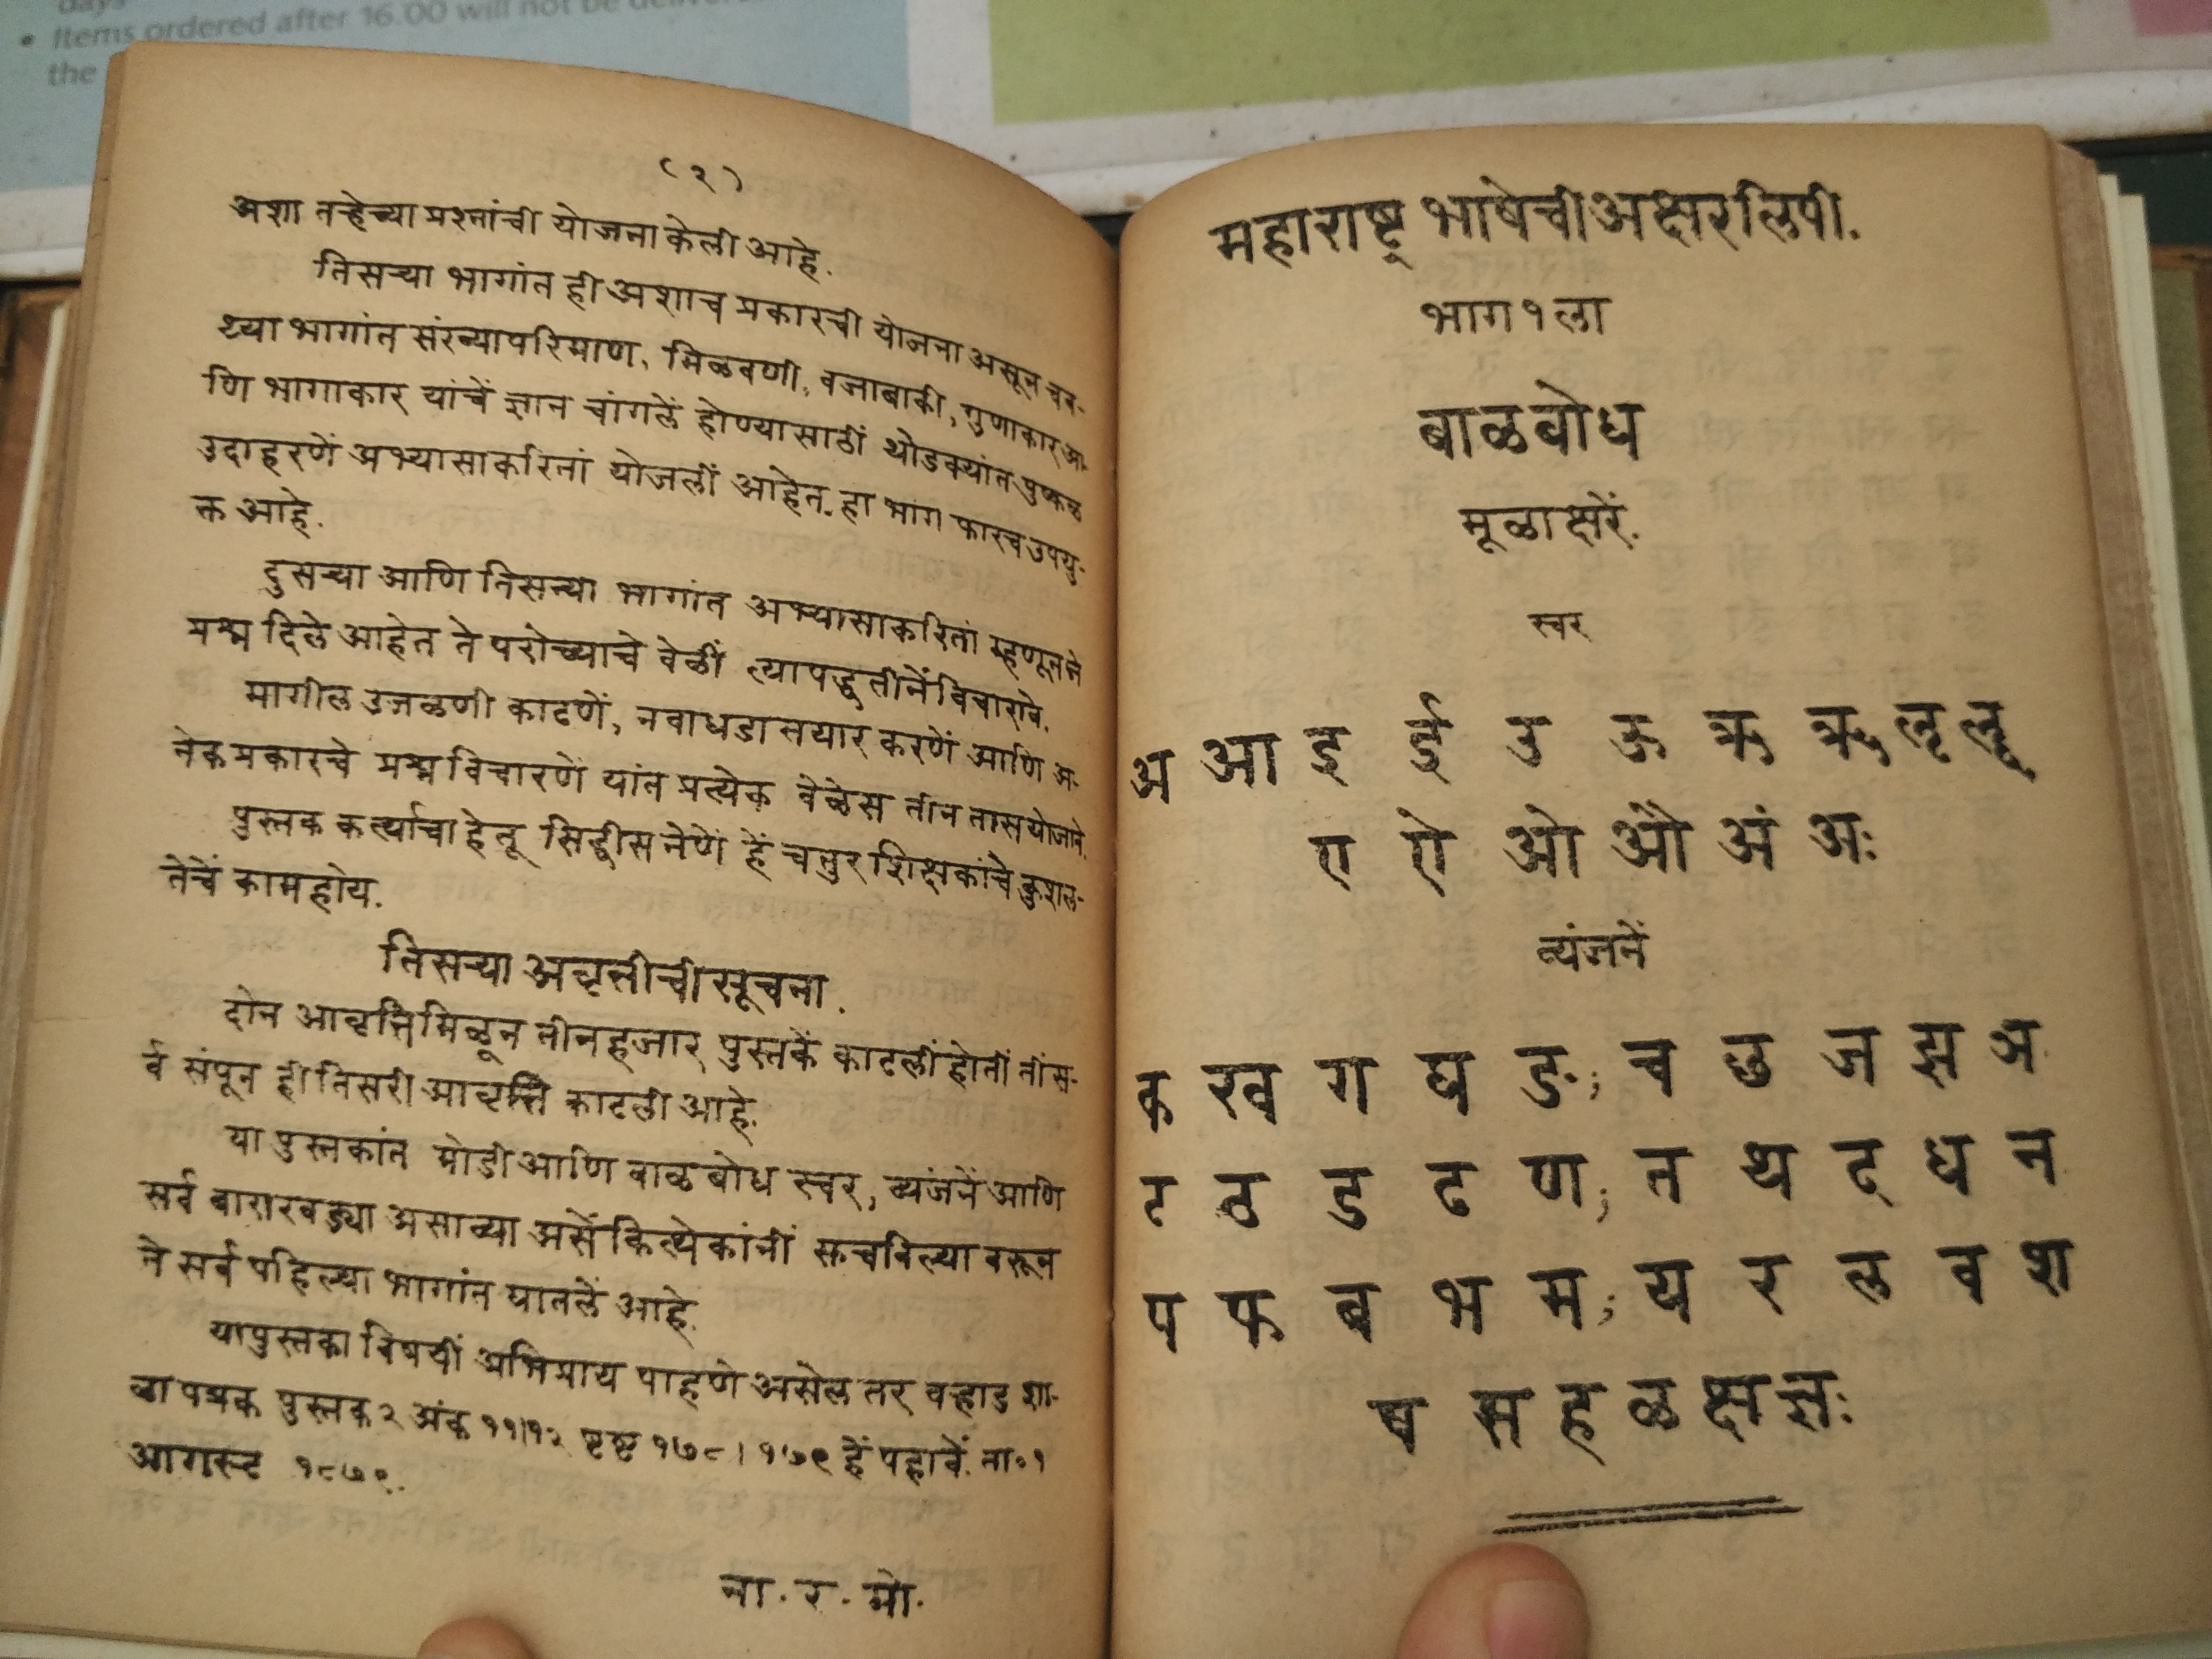 days
• Items ordered after 16.00 will not be
the
(२)
अशा तऱ्हेच्या प्रश्नांची योजना केली आहे.
तिसऱ्या भागांत ही अशाच प्रकारची योजना असून चव-
थ्या भागांत संख्यापरिमाण, मिळवणी, वजाबाकी, गुणाकार आ-
णि भागाकार यांचें ज्ञान चांगलें होण्यासाठीं थोडक्यांत पुष्कळ
उदाहरणें अभ्यासाकरितां योजलीं आहेत. हा भाग फारच उपयु-
क्त आहे.
दुसऱ्या आणि तिसऱ्या भागांत अभ्यासाकरितां म्हणून जे
प्रश्न दिले आहेत ते परीक्षेच्याचे वेळीं त्या पद्धतीनें विचारावे.
मागील उजळणी काढणें, नवा धडा तयार करणें आणि अ-
नेक प्रकारचे प्रश्न विचारणें यांत प्रत्येक वेळेस तीन तास योजावे.
पुस्तक कर्त्याचा हेतू सिद्धीस नेणें हें चतुर शिक्षकांचे कुशल-
तेचें काम होय.
तिसऱ्या अवृत्तीची सूचना.
दोन आवृत्ति मिळून तीन हजार पुस्तकें काढलीं होतीं तीं स-
र्व संपून ही तिसरी आवृत्ति काढली आहे.
या पुस्तकांत मोडी आणि बाळबोध स्वर, व्यंजनें आणि
सर्व बाराखड्या असाव्या असें कित्येकांनीं सुचविल्या वरून
ते सर्व पहिल्या भागांत घातलें आहे.
या पुस्तका विषयीं अभिप्राय पाहणे असेल तर वऱ्हाड शा-
ळा पत्रक पुस्तक २ अंक ११।१२ पृष्ट १७८।१७९ हें पहावें. ता० १
आगस्ट १८७९.
ना. र. मो.
महाराष्ट्र भाषेची अक्षरलिपी.
भाग १ ला
बाळबोध
मूळाक्षरें.
स्वर
अ आ इ ई उ ऊ ऋ ॠ ऌ ॡ
ए ऐ ओ औ अं अः
व्यंजनें
क ख ग घ ङ; च छ ज झ ञ
ट ठ ड ढ ण; त थ द ध न
प फ ब भ म; य र ल व श
ष स ह ळ क्ष ज्ञः